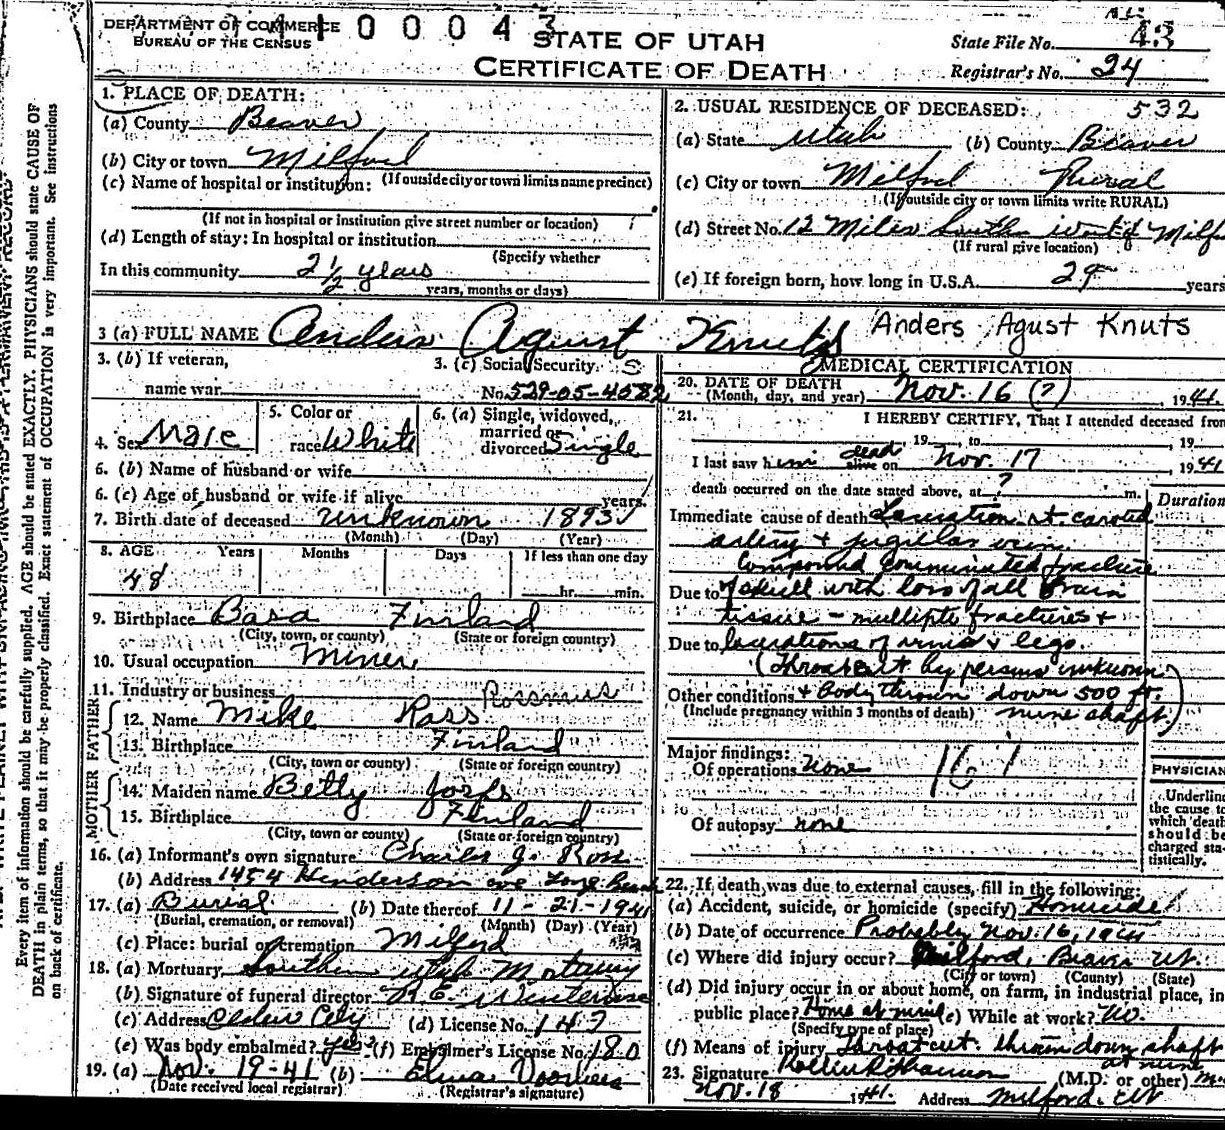 DEPARTMENT OF COMMERCE
BUREAU OF THE CENSUS
0 0 0 4 3
STATE OF UTAH
CERTIFICATE OF DEATH
State File No. 43
Registrar's No. 24
1. PLACE OF DEATH:
(a) County Beaver
(b) City or town Milford
(c) Name of hospital or institution: (If outside city or town limits name precinct)
(If not in hospital or institution give street number or location)
(d) Length of stay: In hospital or institution
(Specify whether
In this community 2½ years
years, months or days)
2. USUAL RESIDENCE OF DECEASED: 532
(a) State Utah (b) County Beaver
(c) City or town Milford Rural
(If outside city or town limits write RURAL)
(d) Street No. 12 Miles South West of Milf
(If rural give location)
(e) If foreign born, how long in U.S.A. 29 years
3 (a) FULL NAME Anders Agust Knuts Anders Agust Knuts
3. (b) If veteran,
name war
3. (c) Social Security
No. 529-05-4582
4. Sex Male
5. Color or
race White
6. (a) Single, widowed,
married or
divorced Single
6. (b) Name of husband or wife
6. (c) Age of husband or wife if alive years
7. Birth date of deceased unknown 1893
(Month) (Day) (Year)
8. AGE Years Months Days If less than one day
48
hr. min.
9. Birthplace Basa Finland
(City, town, or county) (State or foreign country)
10. Usual occupation Miner
11. Industry or business
FATHER
12. Name Mike Ross
13. Birthplace Finland
(City, town or county) (State or foreign country)
MOTHER
14. Maiden name Betty
15. Birthplace Finland
(City, town or county) (State or foreign country)
16. (a) Informant's own signature Charles J. Ross
(b) Address 1454 Henderson ave Long Beach
17. (a) Burial (b) Date thereof 11-21-1941
(Burial, cremation, or removal) (Month) (Day) (Year)
(c) Place: burial or cremation Milford
18. (a) Mortuary Southern Utah Mortuary
(b) Signature of funeral director
(c) Address Cedar City (d) License No. 147
(e) Was body embalmed? yes (f) Embalmer's License No. 180
19. (a) Nov. 19-41 (b) Elma Voorhees
(Date received local registrar) (Registrar's signature)
MEDICAL CERTIFICATION
20. DATE OF DEATH
(Month, day, and year) Nov. 16 (?) 1941.
21. I HEREBY CERTIFY, That I attended deceased from
, 19 , to 19
I last saw him dead alive on Nov. 17 1941
death occurred on the date stated above, at ? m.
Duration
Immediate cause of death Laceration rt. carotid
artery & jugular vein.
Compound Comminuted fracture
Due to of skull with loss of all brain
tissue - multiple fractures &
Due to lacerations of arms & legs.
(Throat cut by persons unknown
Other conditions & body thrown down 500 ft.
(Include pregnancy within 3 months of death) mine shaft.)
Major findings:
Of operations none
Of autopsy none
PHYSICIAN
Underline
the cause
which death
should be
charged sta-
tistically.
22. If death was due to external causes, fill in the following:
(a) Accident, suicide, or homicide (specify) Homicide
(b) Date of occurrence Probably Nov. 16, 1941
(c) Where did injury occur? Milford, Beaver Ut.
(City or town) (County) (State)
(d) Did injury occur in or about home, on farm, in industrial place, in
public place? Home at mine (e) While at work? no.
(Specify type of place)
(f) Means of injury Throat cut. thrown down shaft
at mine
23. Signature (M.D. or other)
Nov. 18 1941. Address Milford. Ut
Every item of information should be carefully supplied. AGE should be stated EXACTLY. PHYSICIANS should state CAUSE OF
DEATH in plain terms, so that it may be properly classified. Exact statement of OCCUPATION is very important. See instructions
on back of certificate.